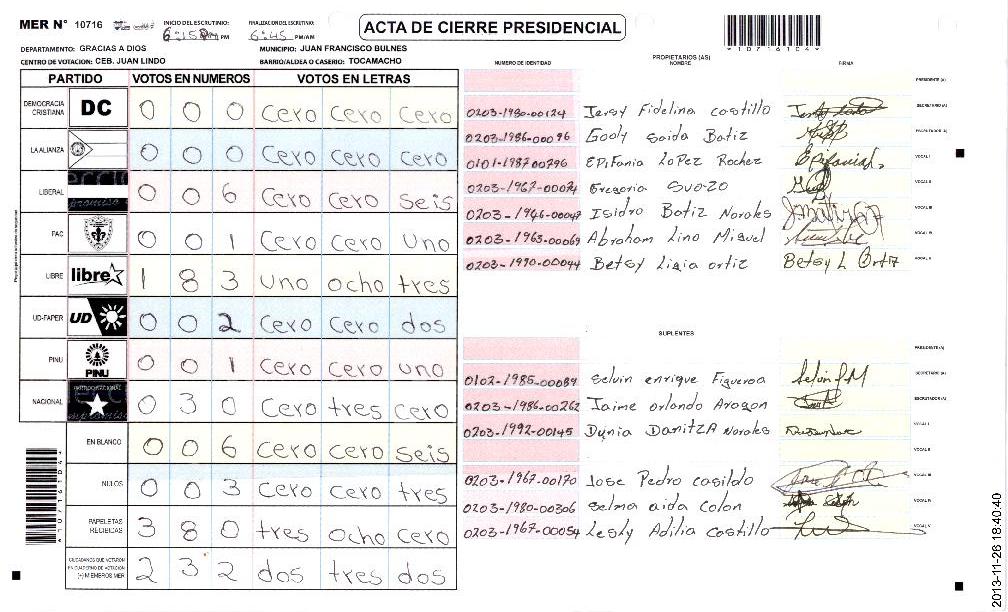 MER N° 10716
INICIO DEL ESCRUTINIO: 6:15 PM
FINALIZACION DEL ESCRUTINIO: 6:45 PM/AM
ACTA DE CIERRE PRESIDENCIAL
*10716104*
DEPARTAMENTO: GRACIAS A DIOS
MUNICIPIO: JUAN FRANCISCO BULNES
CENTRO DE VOTACION: CEB. JUAN LINDO
BARRIO/ALDEA O CASERIO: TOCAMACHO
PARTIDO VOTOS EN NUMEROS VOTOS EN LETRAS
DEMOCRACIA CRISTIANA DC 0 0 0 cero cero cero
LA ALIANZA 0 0 0 cero cero cero
LIBERAL 0 0 6 cero cero seis
FAC 0 0 1 cero cero uno
LIBRE libre 1 8 3 uno ocho tres
UD-FAPER UD 0 0 2 cero cero dos
PINU PINU 0 0 1 cero cero uno
NACIONAL 0 3 0 cero tres cero
EN BLANCO 0 0 6 cero cero seis
NULOS 0 0 3 cero cero tres
PAPELETAS RECIBIDAS 3 8 0 tres ocho cero
CIUDADANOS QUE VOTARON EN CUADERNO DE VOTACION (+) MIEMBROS MER 2 3 2 dos tres dos
NUMERO DE IDENTIDAD PROPIETARIOS (AS) NOMBRE FIRMA
PRESIDENTE (A)
0203-1980-00124 Jersy Fidelina castillo SECRETARIO (A)
0203-1986-00096 Gooly Saida Batiz ESCRUTADOR (A)
0101-1987-00796 EPifania LoPez Rochez Epifania L. VOCAL I
0203-1967-00024 Gregoria Suazo VOCAL II
0203-1946-00047 Isidro Batiz Norales VOCAL III
0203-1963-00069 Abraham Lino Miguel VOCAL IV
0203-1990-00044 Betsy Ligia ortiz Betsy L Ortiz VOCAL V
SUPLENTES
PRESIDENTE (A)
0102-1985-00089 Selvin enrique Figueroa Selvin F.M SECRETARIO (A)
0203-1986-00262 Jaime orlando Aragon ESCRUTADOR (A)
0203-1992-00145 Dunia DanitzA Norales VOCAL I
VOCAL II
0203-1967-00170 Jose Pedro casildo VOCAL III
0203-1980-00306 Selma aida Colon VOCAL IV
0203-1967-00054 Lesly Adilia Castillo VOCAL V
*10716104*
2013-11-26 18:40:40